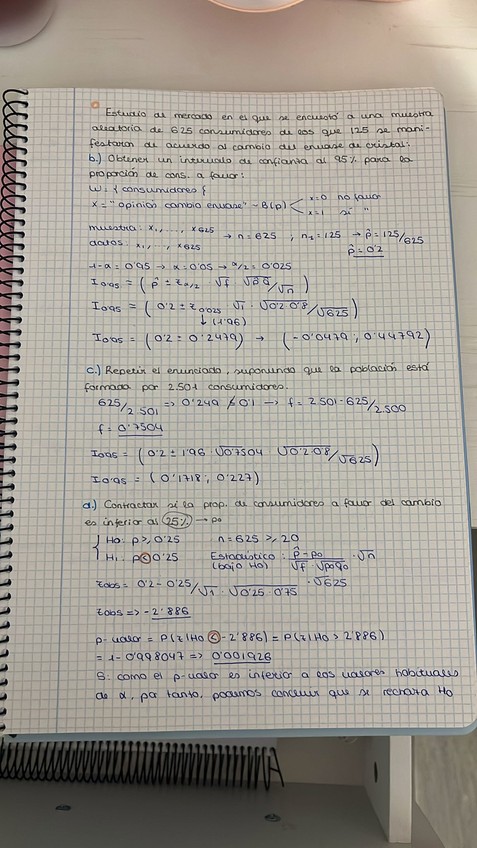 Estudio de mercado en el que se encuestó a una muestra
aleatoria de 625 consumidores de los que 125 se mani-
festaron de acuerdo al cambio del envase de cristal:
b.) Obtener un intervalo de confianza al 95% para la
proporción de cons. a favor:
W = { consumidores }
X = "opinión cambio envase" ~ B(p) x=0 no favor
x=1 sí "
muestra: X1, ..., X625 → n = 625, n1 = 125 → p̂ = 125/625
datos: x1, ..., x625 p̂ = 0'2
1-α = 0'95 → α = 0'05 → α/2 = 0'025
I0'95 = ( p̂ ± zα/2 √f √p̂q̂/√n )
I0'95 = ( 0'2 ± z0'025 √1 · √0'2·0'8/√625 )
↓ (1'96)
I0'95 = ( 0'2 ± 0'2479 ) → ( -0'0479 ; 0'44792 )
c.) Repetir el enunciado, suponiendo que la población está
formada por 2.501 consumidores.
625/2.501 => 0'249 ≮ 0'1 → f = 2.501-625/2.500
f = 0'7504
I0'95 = ( 0'2 ± 1'96 · √0'7504 √0'2·0'8/√625 )
I0'95 = ( 0'1718 ; 0'227 )
d.) Contrastar si la prop. de consumidores a favor del cambio
es inferior al 25% → p0
H0: p ≥ 0'25 n = 625 ≥ 20
H1: p < 0'25 Estadístico: p̂ - p0/√f · √p0q0 · √n
(bajo H0)
zobs = 0'2 - 0'25/√1 · √0'25·0'75 · √625
zobs => -2'886
p-valor = P(z|H0 < -2'886) = P(z|H0 > 2'886)
= 1 - 0'998047 => 0'001926
S: como el p-valor es inferior a los valores habituales
de α, por tanto, podemos concluir que se rechaza H0